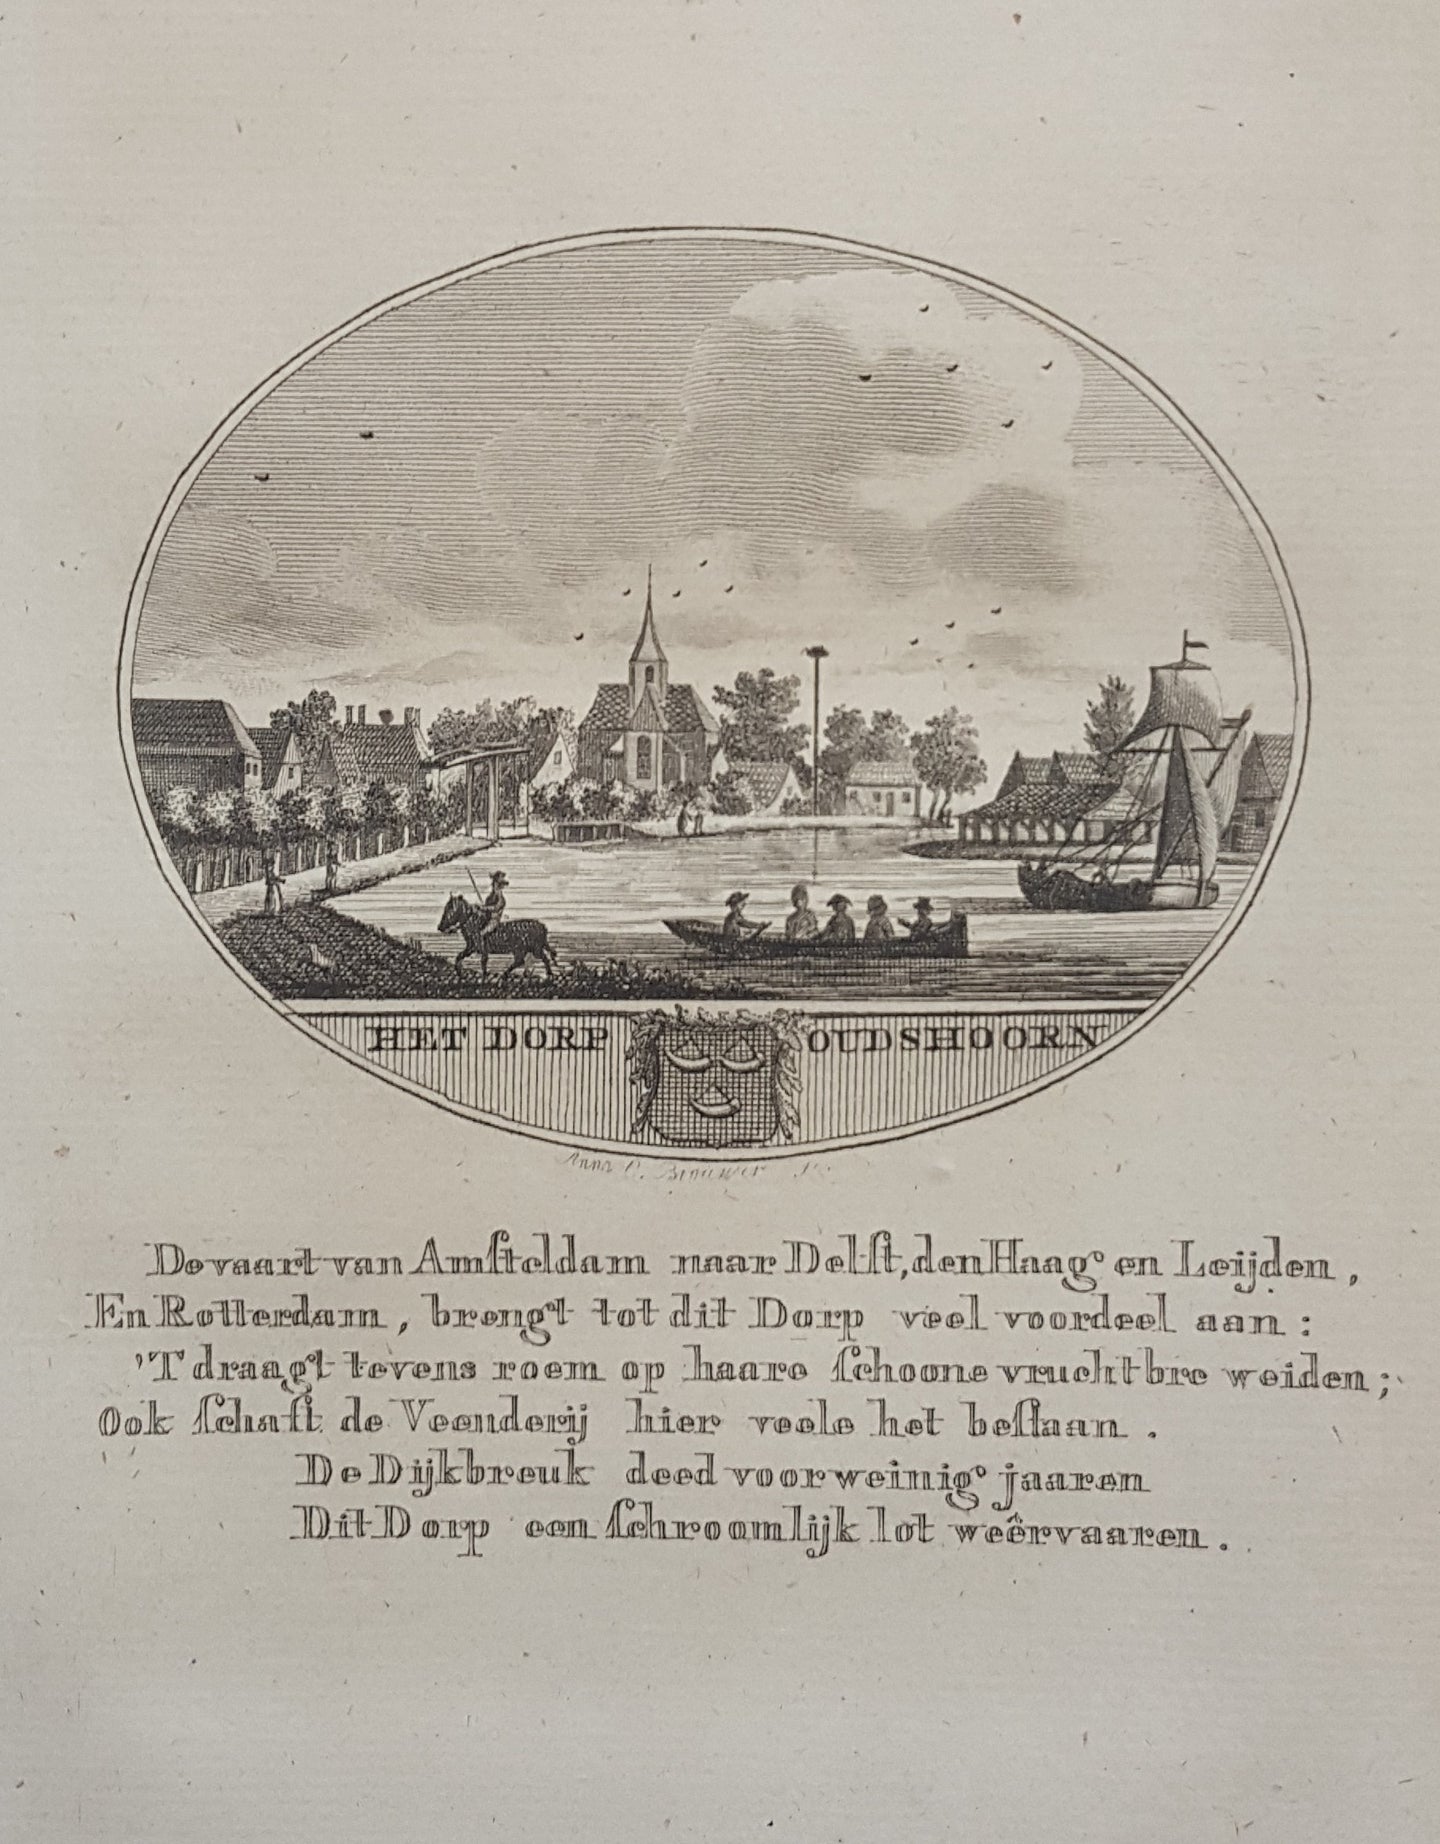 HET DORP OUDSHOORN
Anna C. Brouwer Sc.
De vaart van Amſteldam naar Delft, den Haag en Leijden,
En Rotterdam, brengt tot dit Dorp veel voordeel aan:
'T draagt tevens roem op haare ſchoone vruchtbre weiden;
Ook ſchaft de Veenderij hier veele het beſtaan.
De Dijkbreuk deed voor weinig jaaren
Dit Dorp een ſchroomlijk lot weêrvaaren.